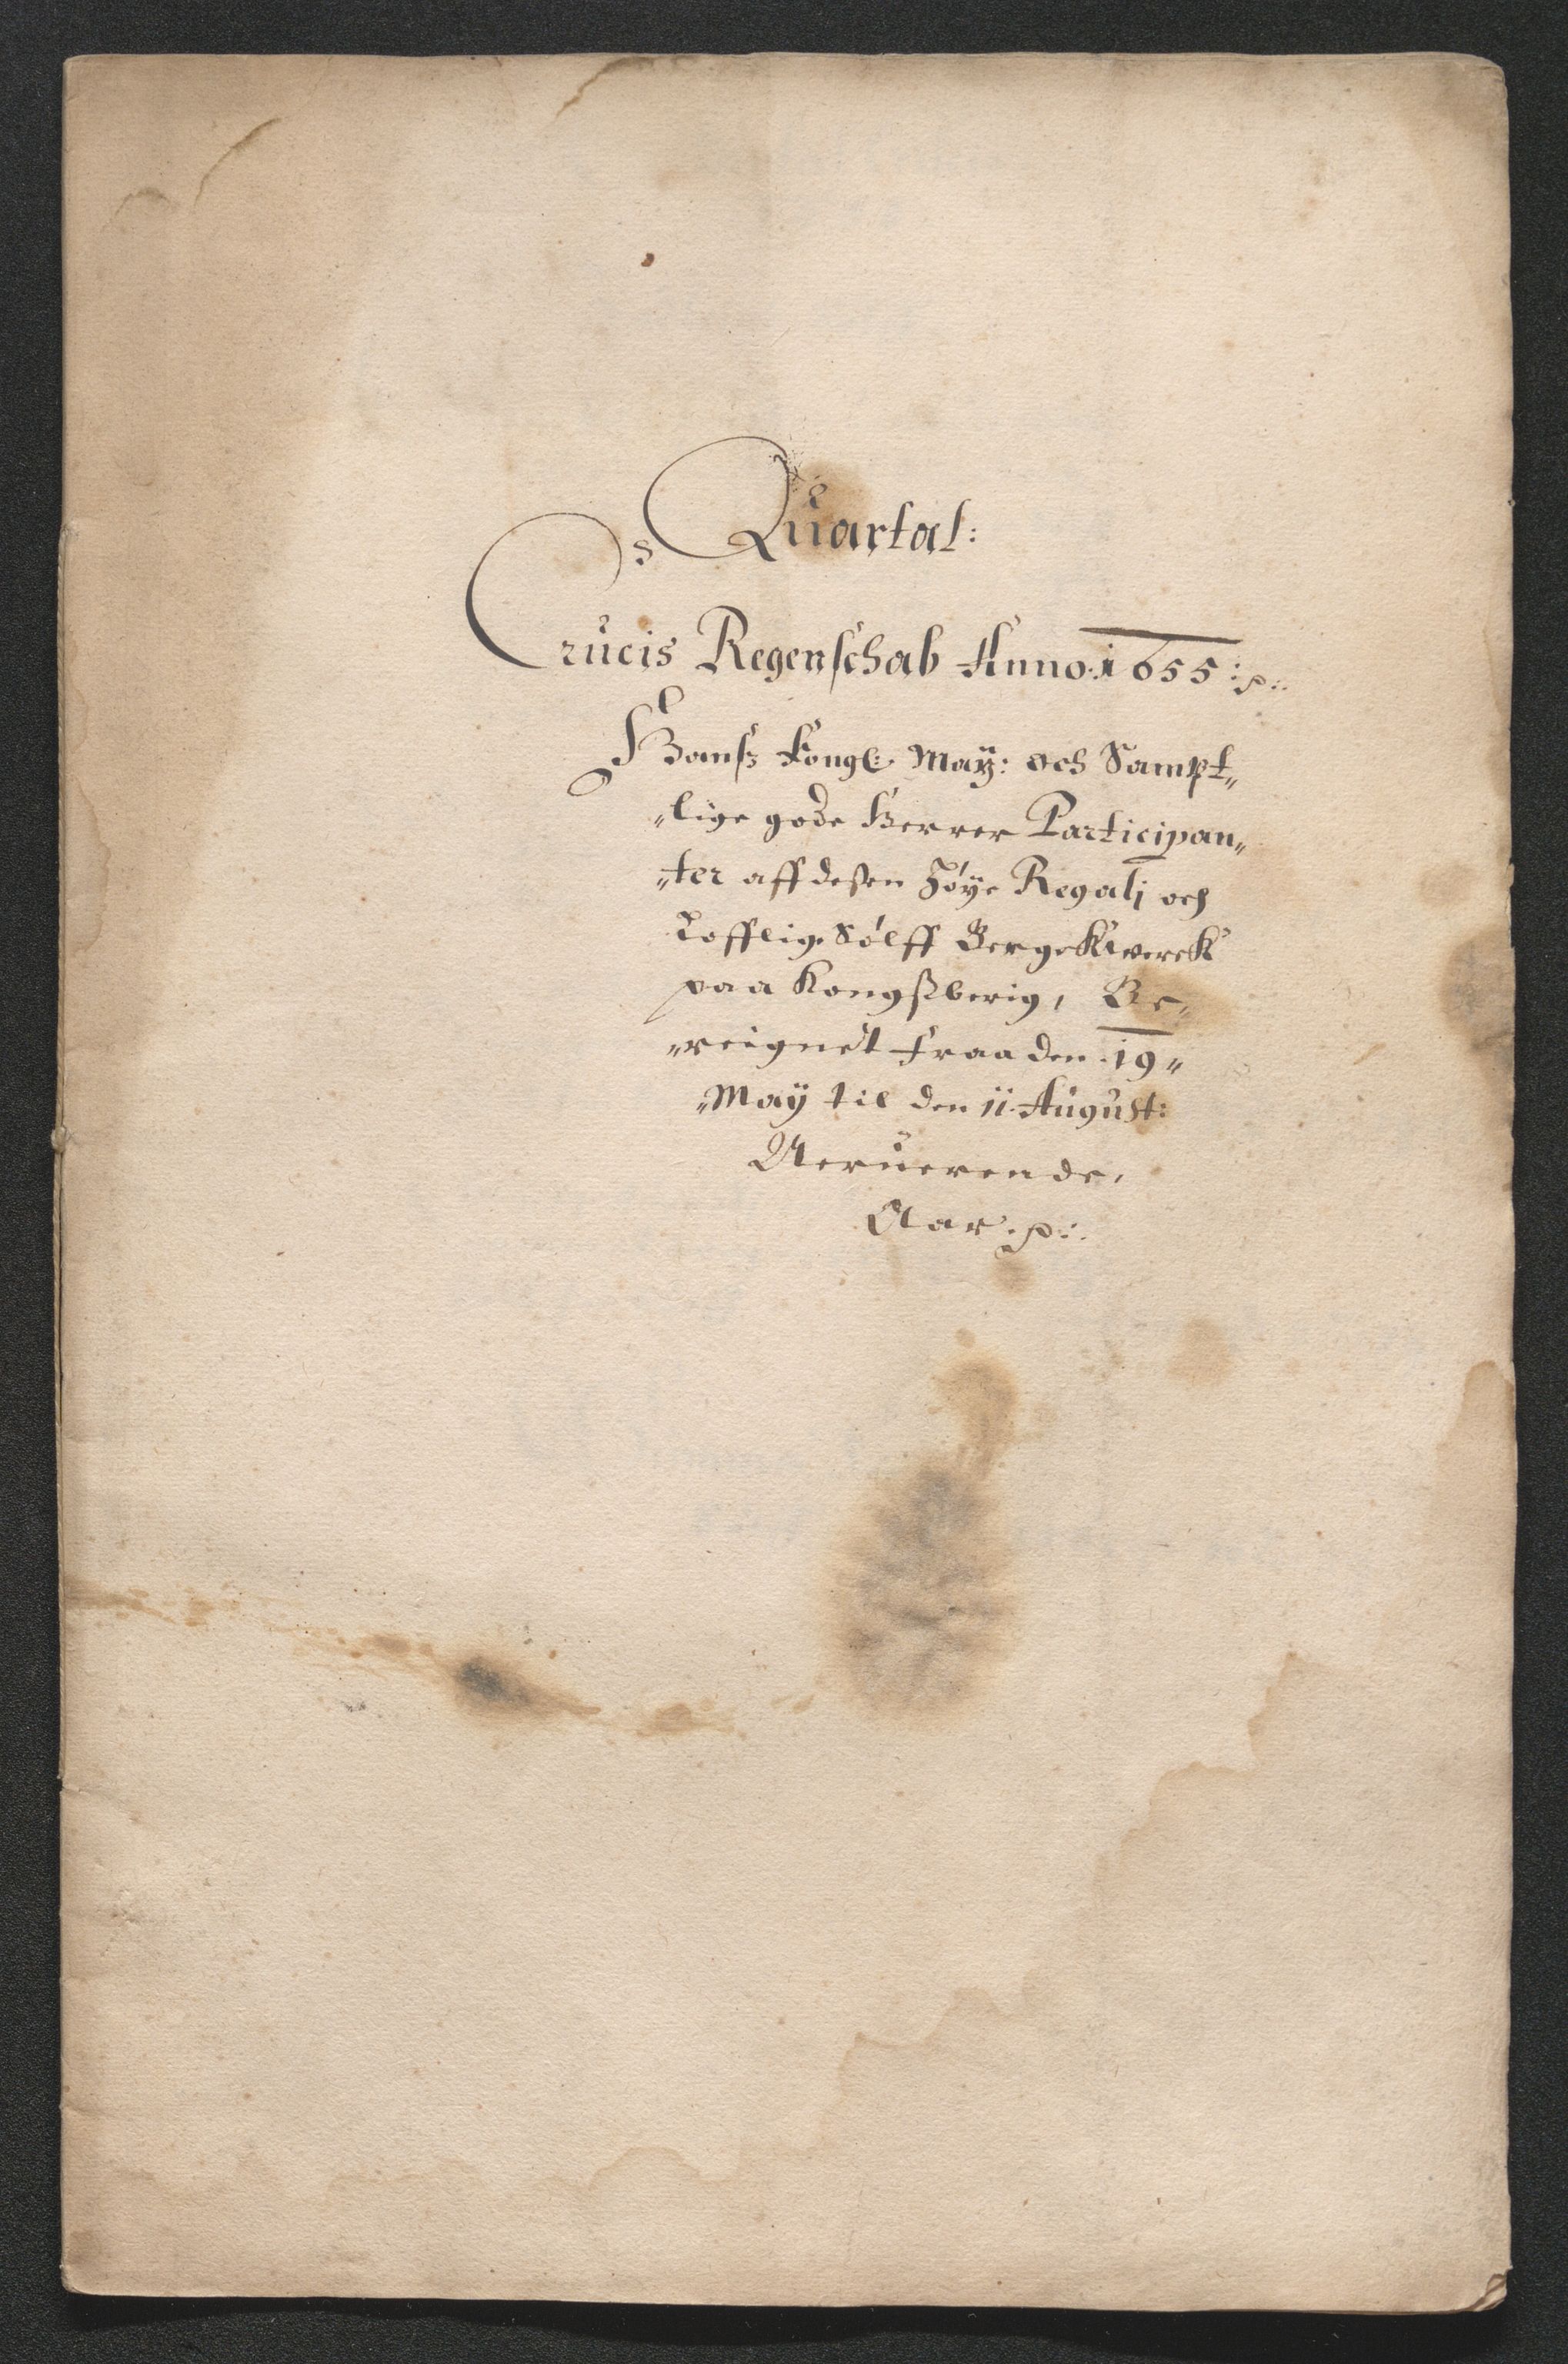 Quartal:
Crucis Regenschab Anno: 1655 :p:.
Hans Kongl: May: och Sampt„
„lige gode Herrer Participan„
„ter aff deßen Høye Regalj och
Lofflig. Sølff Bergckwerck
paa Kongßberig, Be„
„reignet fraa den 19„
„May til den 11. August:
Nerverende,
Aar :p:.